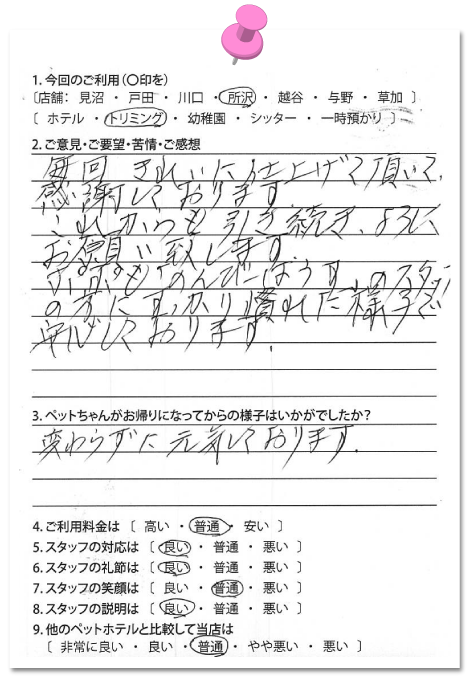 1.今回のご利用(〇印を)
〔店舗： 見沼 ・ 戸田 ・ 川口 ・ 所沢 ・ 越谷 ・ 与野 ・ 草加 〕
〔 ホテル ・ トリミング ・ 幼稚園 ・ シッター ・ 一時預かり 〕
2.ご意見・ご要望・苦情・ご感想
毎回 きれいに仕上げて頂いて、
感謝しております。
これからも引き続き、よろしく
お願い致します。
のスタッフ
の方にすっかり慣れた様子で
安心しております。
3.ペットちゃんがお帰りになってからの様子はいかがでしたか？
変わらずに元気しております。
4.ご利用料金は 〔 高い ・ 普通 ・ 安い 〕
5.スタッフの対応は 〔 良い ・ 普通 ・ 悪い 〕
6.スタッフの礼節は 〔 良い ・ 普通 ・ 悪い 〕
7.スタッフの笑顔は 〔 良い ・ 普通 ・ 悪い 〕
8.スタッフの説明は 〔 良い ・ 普通 ・ 悪い 〕
9.他のペットホテルと比較して当店は
〔 非常に良い ・ 良い ・ 普通 ・ やや悪い ・ 悪い 〕